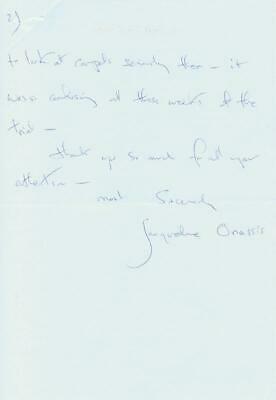 2)
to look at carpets seriously then — it
was so confusing all those weeks of the
trial —
thank you so much for all your
attention —
most Sincerely
Jacqueline Onassis